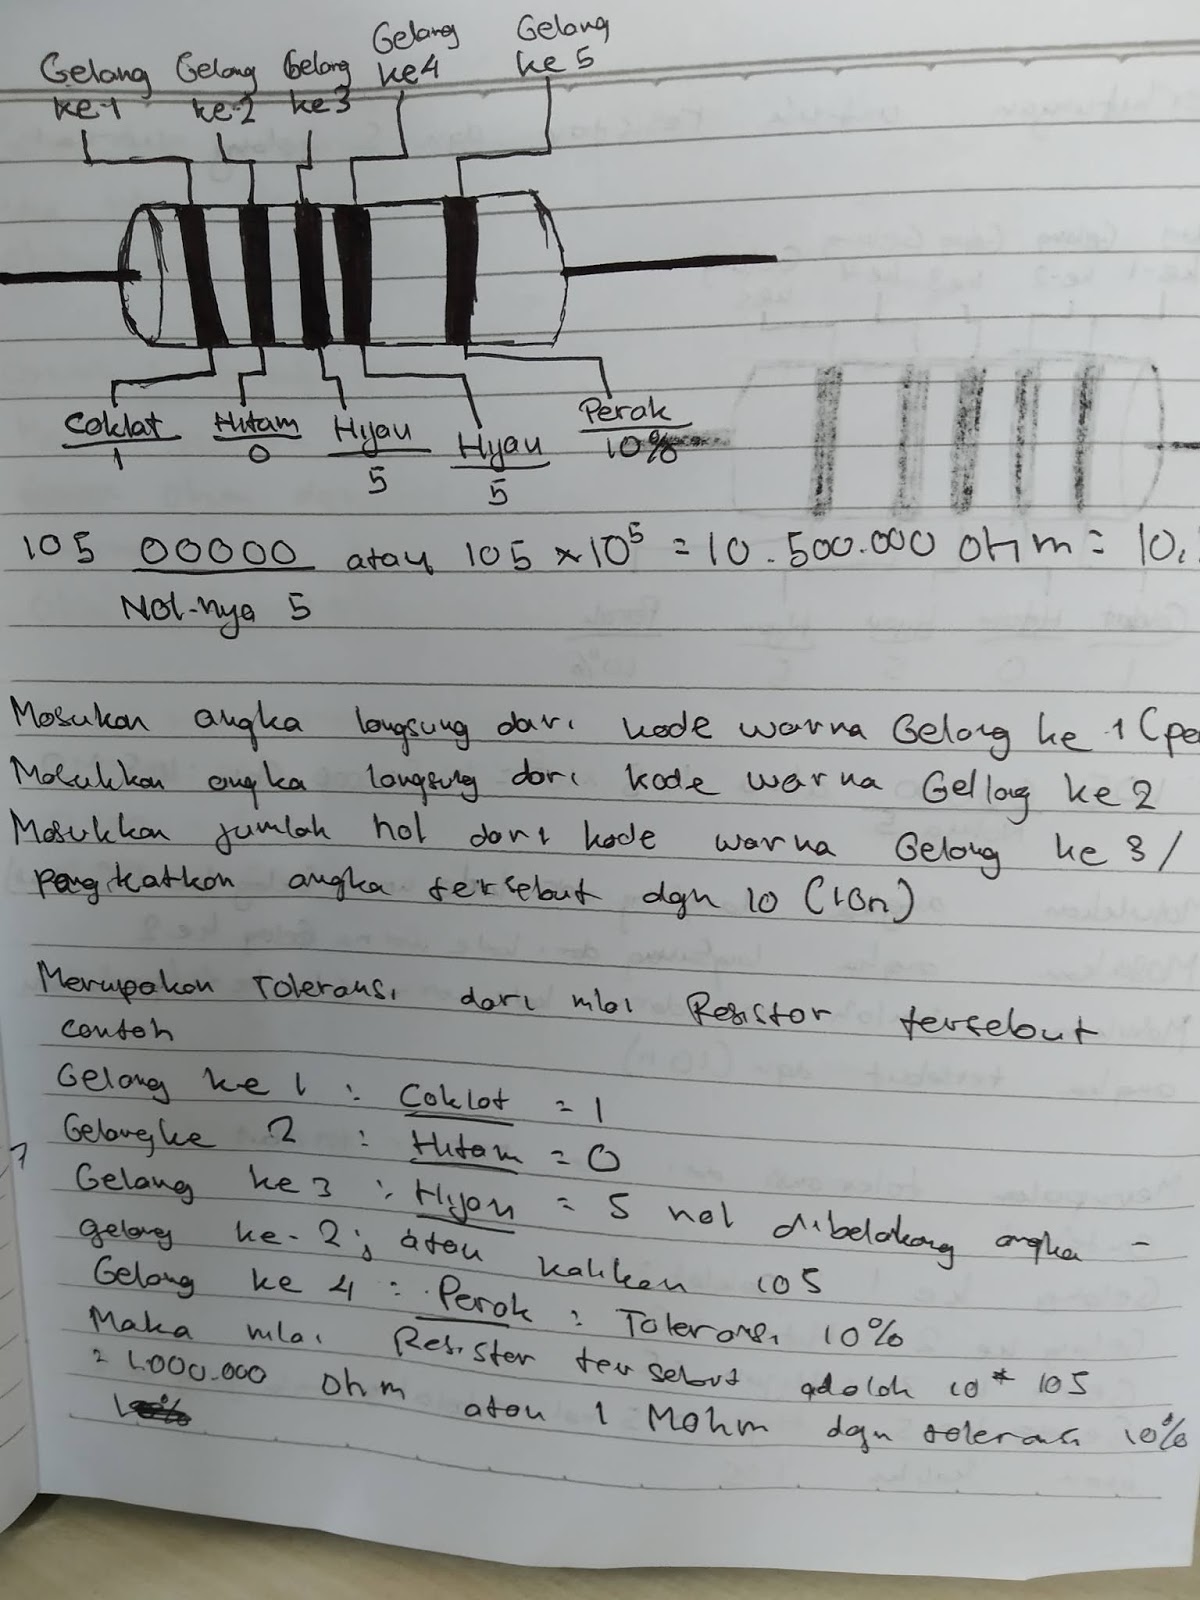 Gelang ke-1 Gelang ke-2 Gelang ke3 Gelang ke4 Gelang ke 5
Coklat Hitam Hijau Hijau Perak
1 0 5 5 10%
105 00000 atau 105 × 10⁵ = 10.500.000 ohm = 10.
Nol-nya 5
Masukan angka langsung dari kode warna Gelang ke 1 (pe
Masukkan angka langsung dari kode warna Gellang ke 2
Masukkan jumlah nol dari kode warna Gelang ke 3 /
pangkatkan angka tersebut dgn 10 (10n)
Merupakan Toleransi dari nilai Resistor tersebut
contoh
Gelang ke 1 : Coklat = 1
Gelang ke 2 : Hitam = 0
Gelang ke 3 : Hijau = 5 nol dibelakang angka -
gelang ke-2; atau kalikan 105
Gelang ke 4 : Perak : Toleransi 10%
Maka nilai Resister tersebut adalah 10 * 105
= 1.000.000 ohm atau 1 Mohm dgn toleransi 10%